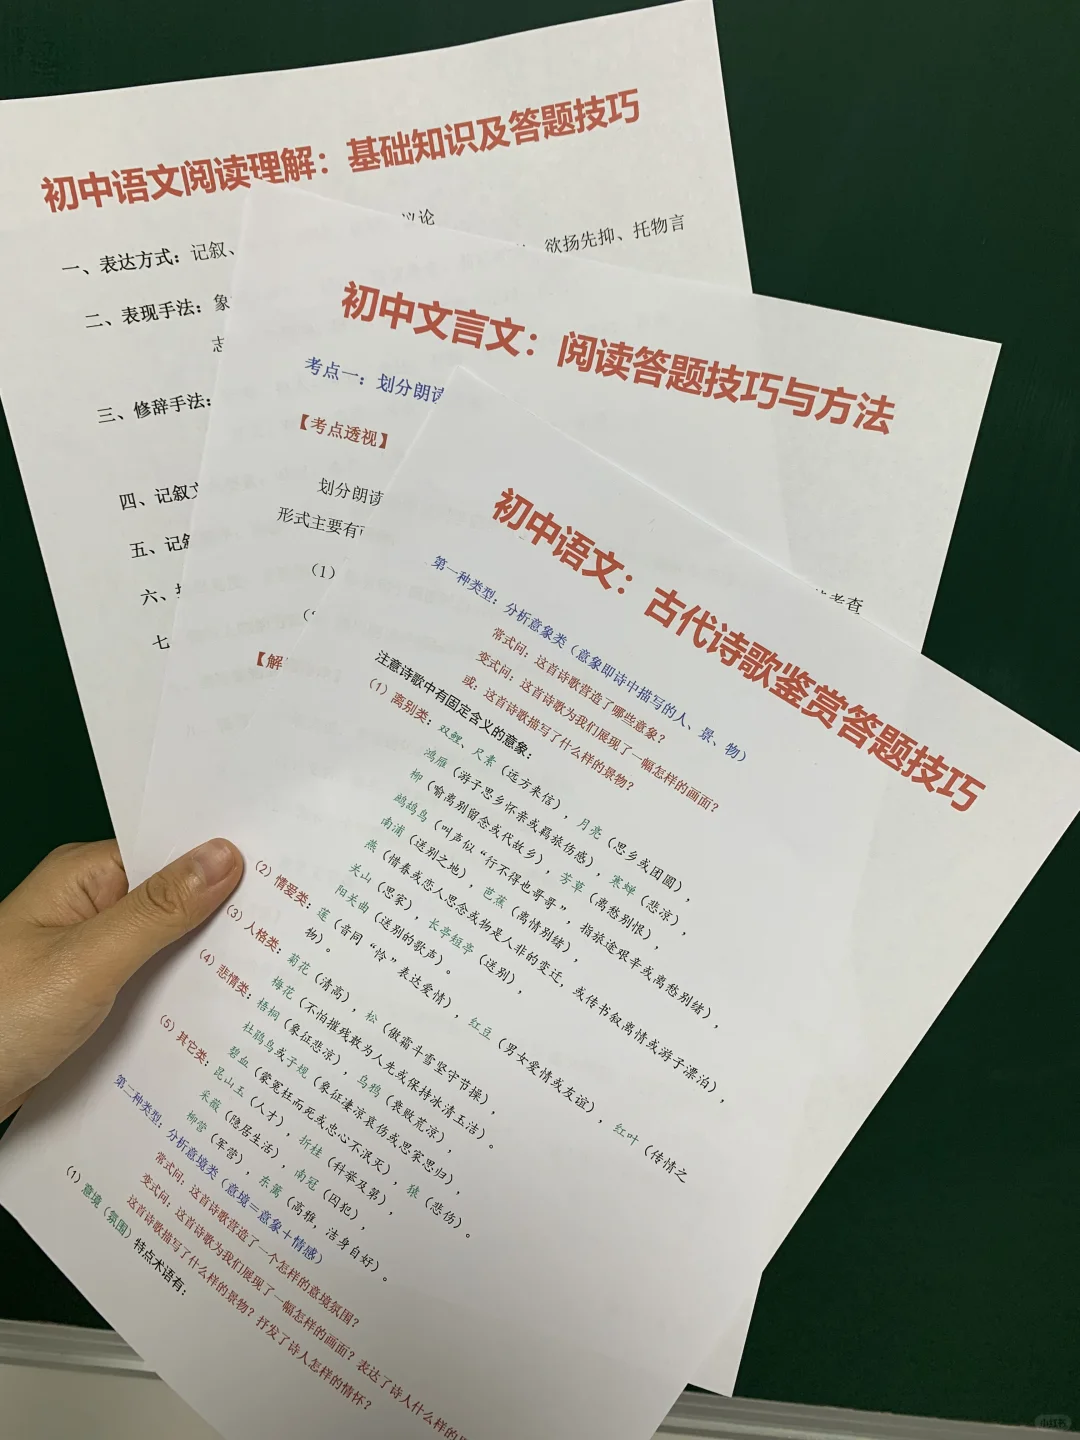 初中语文阅读理解：基础知识及答题技巧
一、表达方式：记叙、
议论
二、表现手法：象
、欲扬先抑、托物言
志
三、修辞手法：
四、记叙文
五、记叙
六、
七
初中文言文：阅读答题技巧与方法
考点一：划分朗读
【考点透视】
划分朗读
考查
形式主要有
（1）
【解
初中语文：古代诗歌鉴赏答题技巧
第一种类型：分析意象类（意象即诗中描写的人、景、物）
常式问：这首诗歌营造了哪些意象？
变式问：这首诗歌为我们展现了一幅怎样的画面？
或：这首诗歌描写了什么样的景物？
注意诗歌中有固定含义的意象：
（1）离别类：双鲤、尺素（远方来信），月亮（思乡或团圆），
鸿雁（游子思乡怀亲或羁旅伤感），寒蝉（悲凉），
柳（喻离别留念或代故乡），芳草（离愁别恨），
鹧鸪鸟（叫声似“行不得也哥哥”，指旅途艰辛或离愁别绪），
南浦（送别之地），芭蕉（离情别绪），
燕（惜春或恋人思念或物是人非的变迁，或传书叙离情或游子漂泊），
关山（思家），长亭短亭（送别），
阳关曲（送别的歌声）。
（2）情爱类：莲（音同“怜”表达爱情），红豆（男女爱情或友谊），红叶（传情之
物）。
（3）人格类：菊花（清高），松（傲霜斗雪坚守节操），
梅花（不怕摧残敢为人先或保持冰清玉洁）。
（4）悲情类：梧桐（象征悲凉），乌鸦（衰败荒凉），
杜鹃鸟或子规（象征凄凉哀伤或思家思归），
碧血（蒙冤枉而死或忠心不泯灭），猿（悲伤）。
（5）其它类：昆山玉（人才），折桂（科举及第），
采薇（隐居生活），南冠（囚犯），
柳营（军营），东篱（高雅，洁身自好）。
第二种类型：分析意境类（意境＝意象＋情感）
常式问：这首诗歌营造了一个怎样的意境氛围？
变式问：这首诗歌为我们展现了一幅怎样的画面？表达了诗人什么样的
这首诗歌描写了什么样的景物？抒发了诗人怎样的情怀？
（1）意境（氛围）特点术语有：
小红书